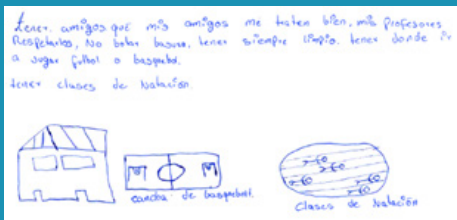 tener amigos que mis amigos me traten bien, mis profesores
Respetarlos, No botar basura, tener siempre limpio. tener donde ir
a jugar futbol o basquebol.
tener clases de Natación.
cancha de basquetbol.
Clases de Natación